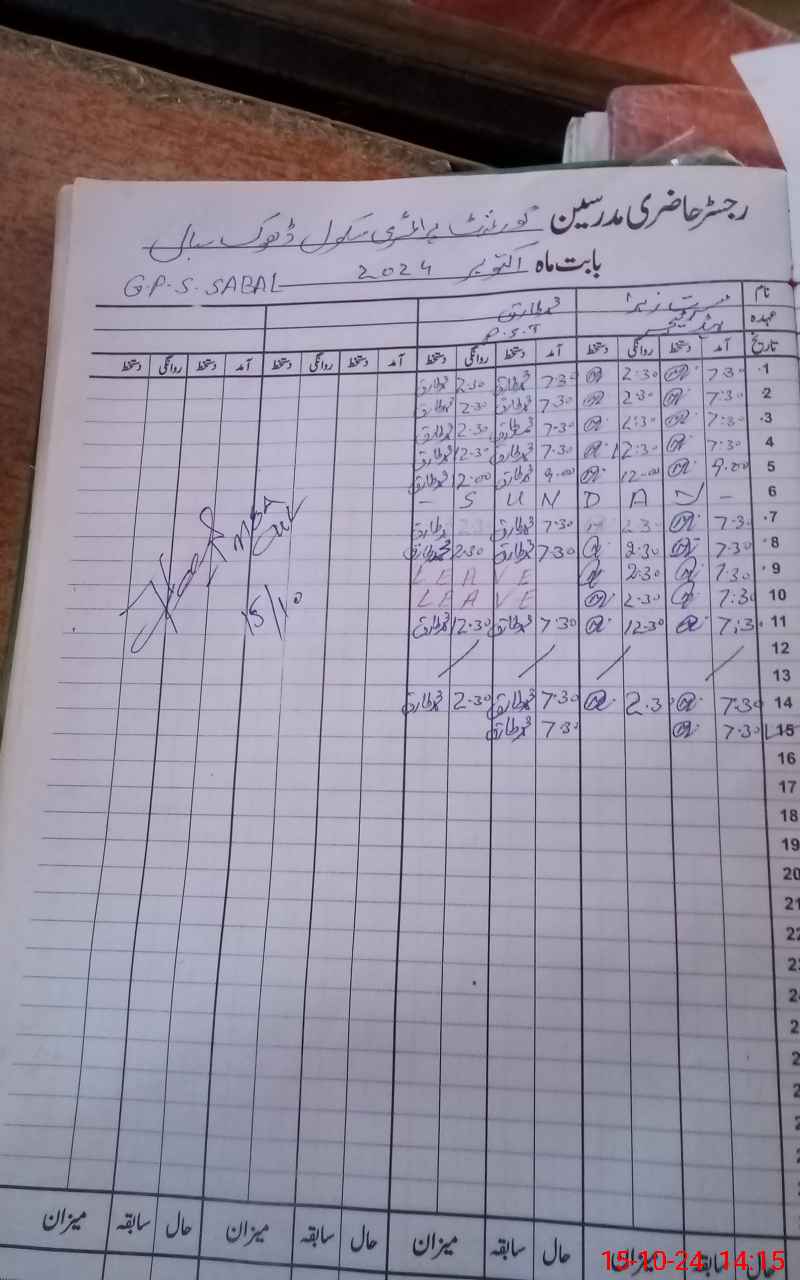 رجسٹر حاضری مدرسین گورنمنٹ پرائمری سکول ڈھوک سبال
بابت ماہ اکتوبر 2024 G.P.S. SABAL
نام مسرت زہرا محمد طارق
عہدہ ہیڈ ٹیچر P.S.T
تاریخ آمد دستخط روانگی دستخط آمد دستخط روانگی دستخط آمد دستخط روانگی دستخط آمد دستخط روانگی دستخط
1 7:30 2:30 7:30 محمد طارق 2:30 محمد طارق
2 7:30 2:30 7:30 محمد طارق 2:30 محمد طارق
3 7:30 2:30 7:30 محمد طارق 2:30 محمد طارق
4 7:30 12:30 7:30 محمد طارق 12:30 محمد طارق
5 9:00 12:00 9:00 محمد طارق 12:00 محمد طارق
6 - S U N D A Y -
7 7:30 2:30 7:30 محمد طارق
8 7:30 2:30 7:30 محمد طارق 2:30 محمد طارق
9 7:30 2:30 LEAVE
10 7:30 2:30 LEAVE
11 7:30 12:30 7:30 محمد طارق 12:30 محمد طارق
15/10
12
13
14 7:30 2:30 7:30 محمد طارق 2:30 محمد طارق
15 7:30 7:30 محمد طارق
16
17
18
19
20
21
22
حال سابقہ میزان حال سابقہ میزان حال سابقہ میزان حال سابقہ میزان
15-10-24 14:15